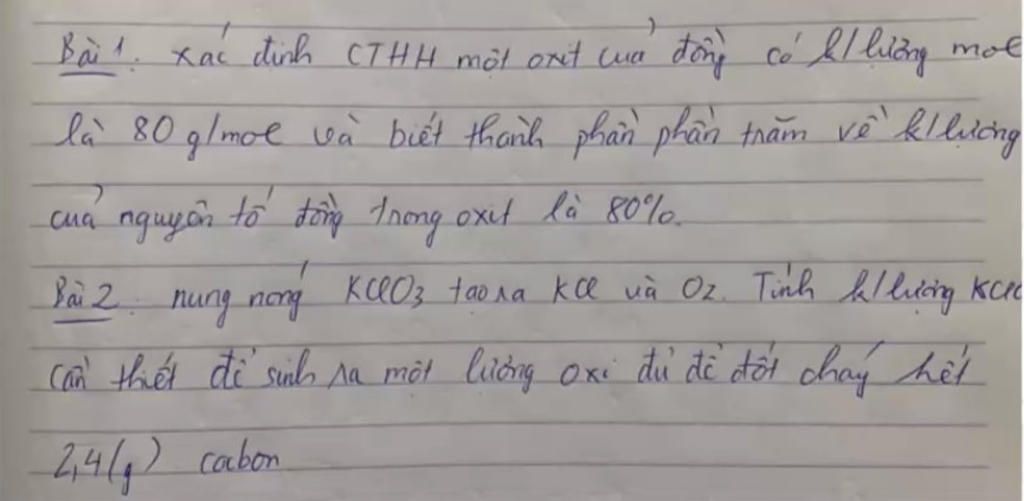 Bài 1. xác định CTHH một oxit của đồng có k/lượng mol
là 80 g/mol và biết thành phần phần trăm về k/lượng
của nguyên tố đồng trong oxit là 80%.
Bài 2. nung nóng KClO3 tạo ra KCl và O2. Tính k/lượng
cần thiết để sinh ra một lượng oxi đủ để đốt cháy hết
2,4(g) cacbon